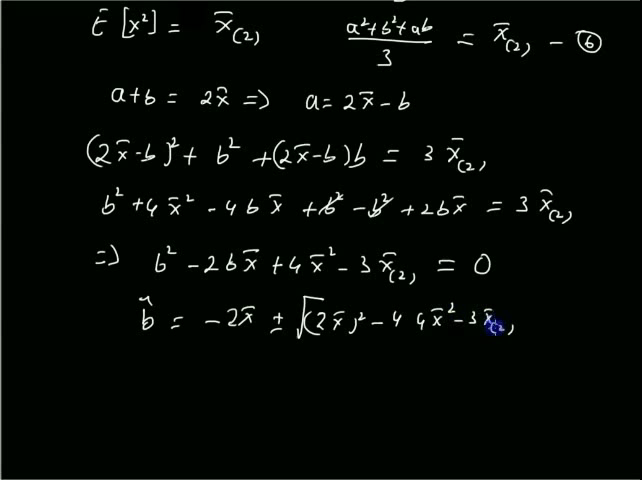 E [x²] = x̄₍₂₎ (a²+b²+ab)/3 = x̄₍₂₎ - ⑥
a+b = 2x̄ => a = 2x̄ - b
(2x̄-b)² + b² + (2x̄-b)b = 3 x̄₍₂₎
b² + 4x̄² - 4bx̄ + b² - b² + 2bx̄ = 3 x̄₍₂₎
=> b² - 2bx̄ + 4x̄² - 3x̄₍₂₎ = 0
b̂ = -2x̄ ± √(2x̄)² - 4 4x̄² - 3x̄₍₂₎